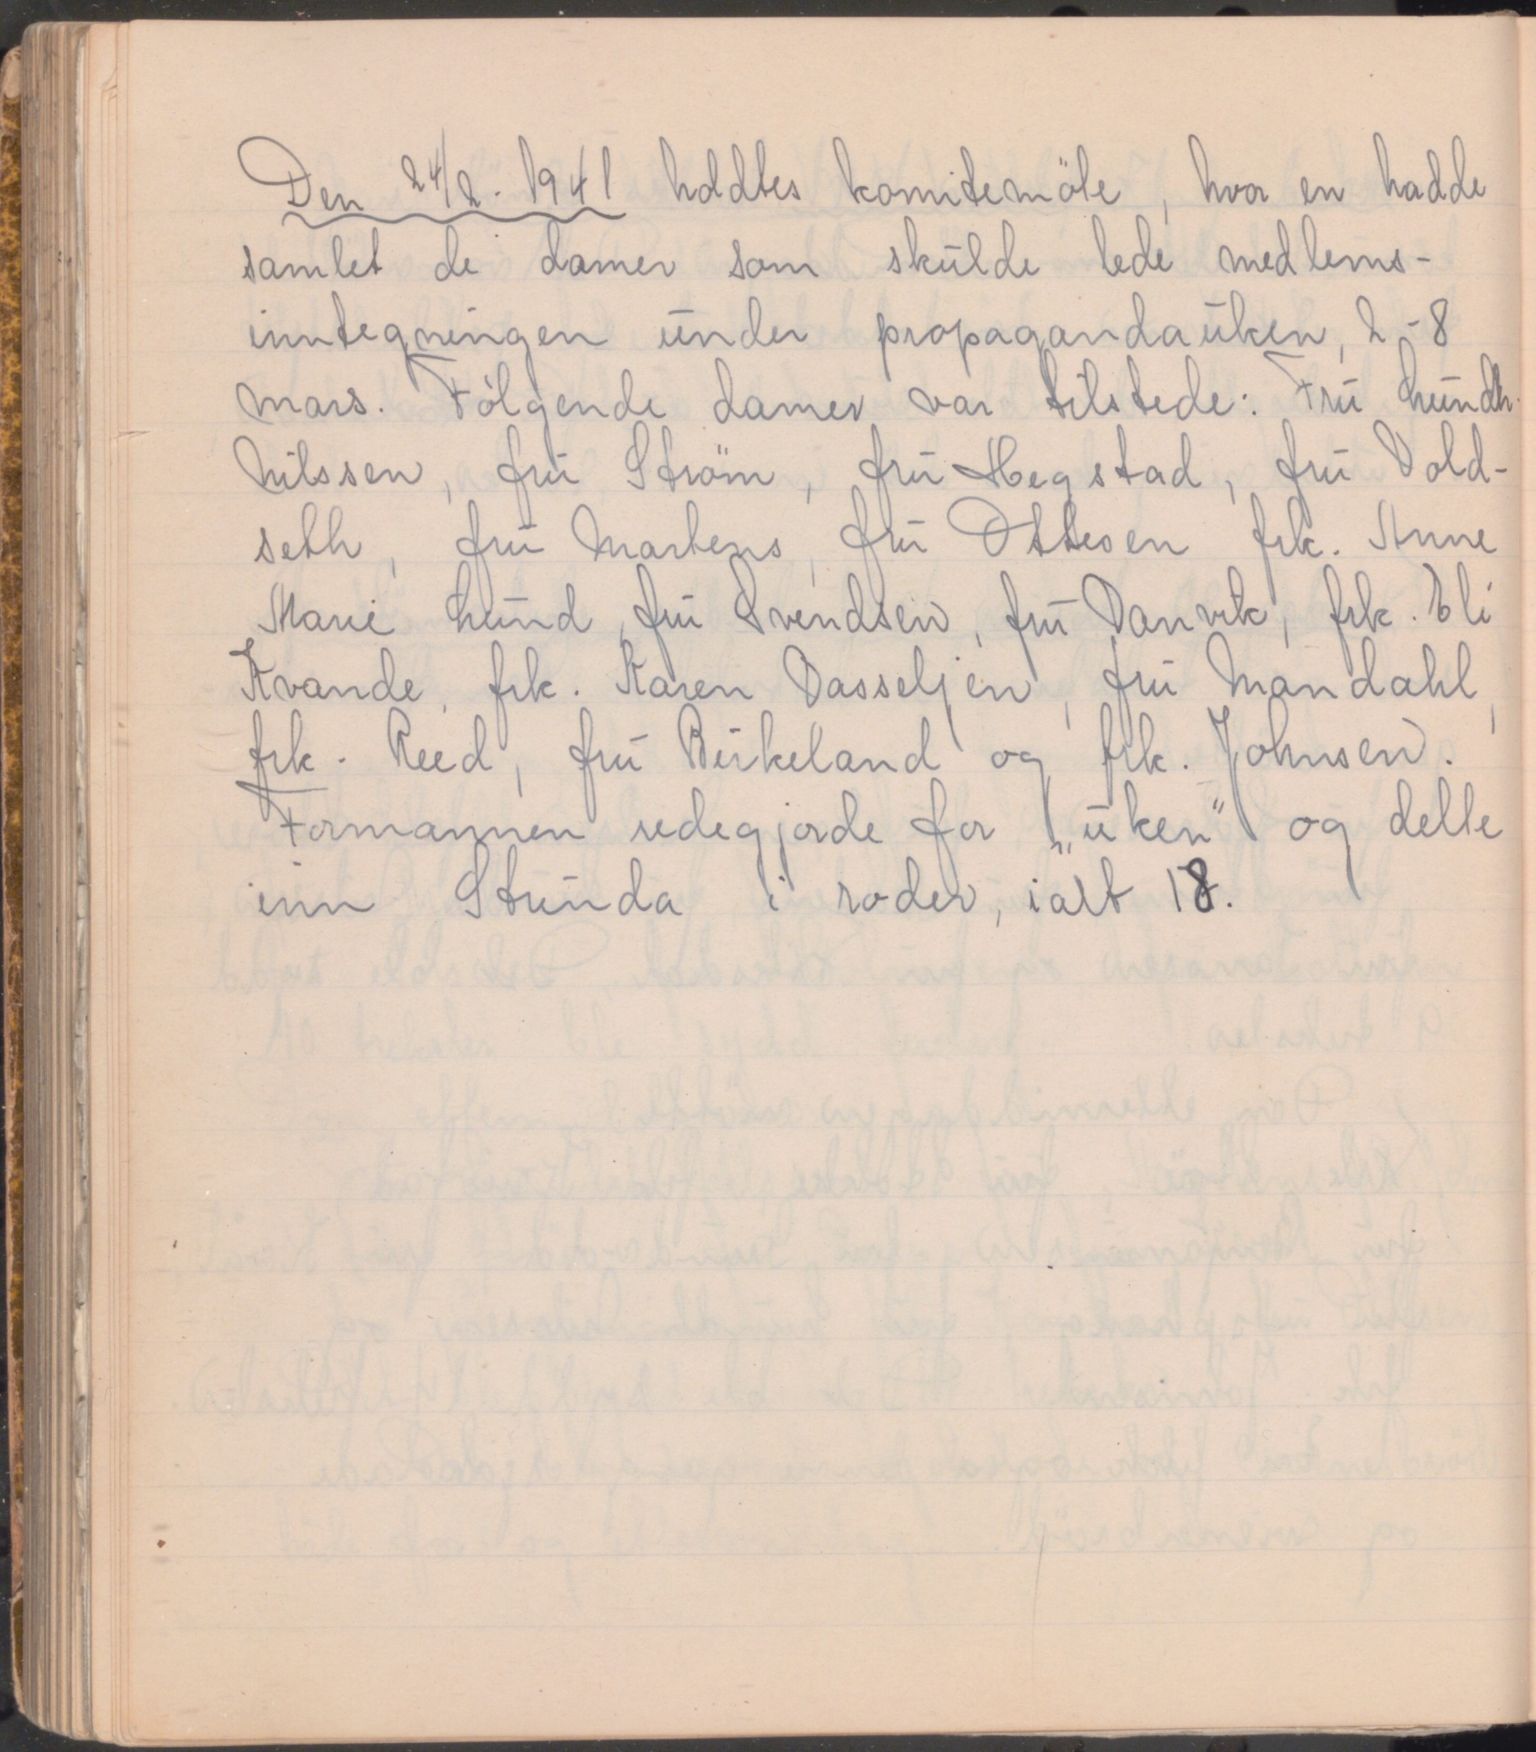 Den 24/2. 1941 holdtes komitemöte, hvor en hadde
samlet de damer som skulde lede medlems-
inntegningen under propagandauken, 2-8
mars. Følgende damer var tilstede: Fru Lundh
Nilssen, fru Strøm, fru Hegstad, fru Vold-
seth, fru Martens, fru Ottesen frk. Anne
Marie Lund, fru Svendsen, fru Danvik, frk. Eli
Kvande, frk. Karen Vasseljen, fru Mandahl,
frk. Reed, fru Birkeland og frk. Johnsen.
Formannen redegjorde for „uken" og delte
inn Strinda i roder, ialt 18.